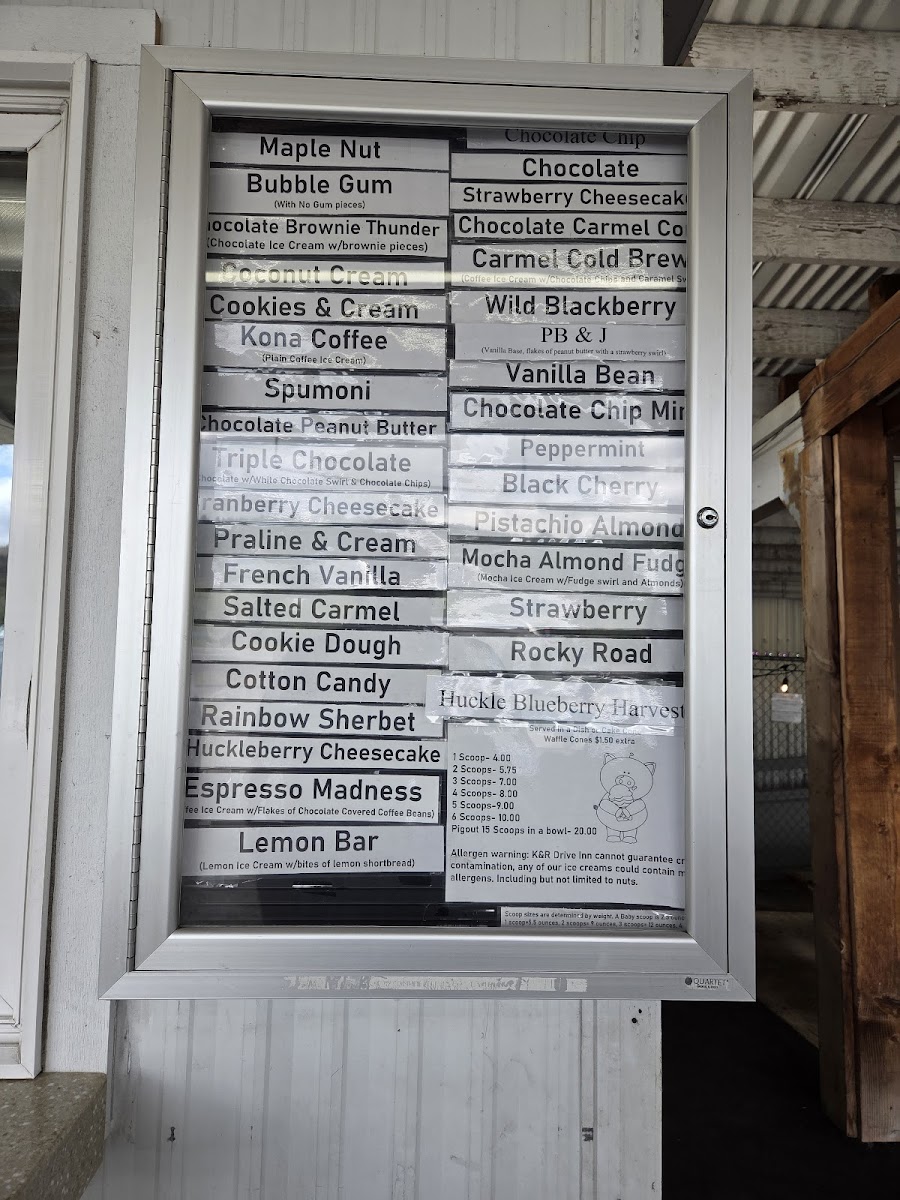 Maple Nut
Bubble Gum
(With No Gum pieces)
ocolate Brownie Thunder
(Chocolate Ice Cream w/brownie pieces)
Coconut Cream
Cookies & Cream
Kona Coffee
(Plain Coffee Ice Cream)
Spumoni
hocolate Peanut Butter
Triple Chocolate
hocolate w/White Chocolate Swirl & Chocolate Chips)
ranberry Cheesecake
Praline & Cream
French Vanilla
Salted Carmel
Cookie Dough
Cotton Candy
Rainbow Sherbet
Huckleberry Cheesecake
Espresso Madness
fee Ice Cream w/Flakes of Chocolate Covered Coffee Beans)
Lemon Bar
(Lemon Ice Cream w/bites of lemon shortbread)
Chocolate Chip
Chocolate
Strawberry Cheesecak
Chocolate Carmel Co
Carmel Cold Brew
(Coffee Ice Cream w/Chocolate Chips and Caramel Sw
Wild Blackberry
PB & J
(Vanilla Base, flakes of peanut butter with a strawberry swirl)
Vanilla Bean
Chocolate Chip Min
Peppermint
Black Cherry
Pistachio Almond
Mocha Almond Fudg
(Mocha Ice Cream w/Fudge swirl and Almonds)
Strawberry
Rocky Road
Huckle Blueberry Harvest
Served in a Dish or Cake
Waffle Cones $1.50 extra
1 Scoop- 4.00
2 Scoops- 5.75
3 Scoops- 7.00
4 Scoops- 8.00
5 Scoops-9.00
6 Scoops- 10.00
Pigout 15 Scoops in a bowl- 20.00
Allergen warning: K&R Drive Inn cannot guarantee cr
contamination, any of our ice creams could contain m
allergens. Including but not limited to nuts.
Scoop sizes are determined by weight. A Baby scoop is 2.5 ounc
1 scoop=5.5 ounces, 2 scoops= 9 ounces, 3 scoops= 12 ounces, 4
QUARTET